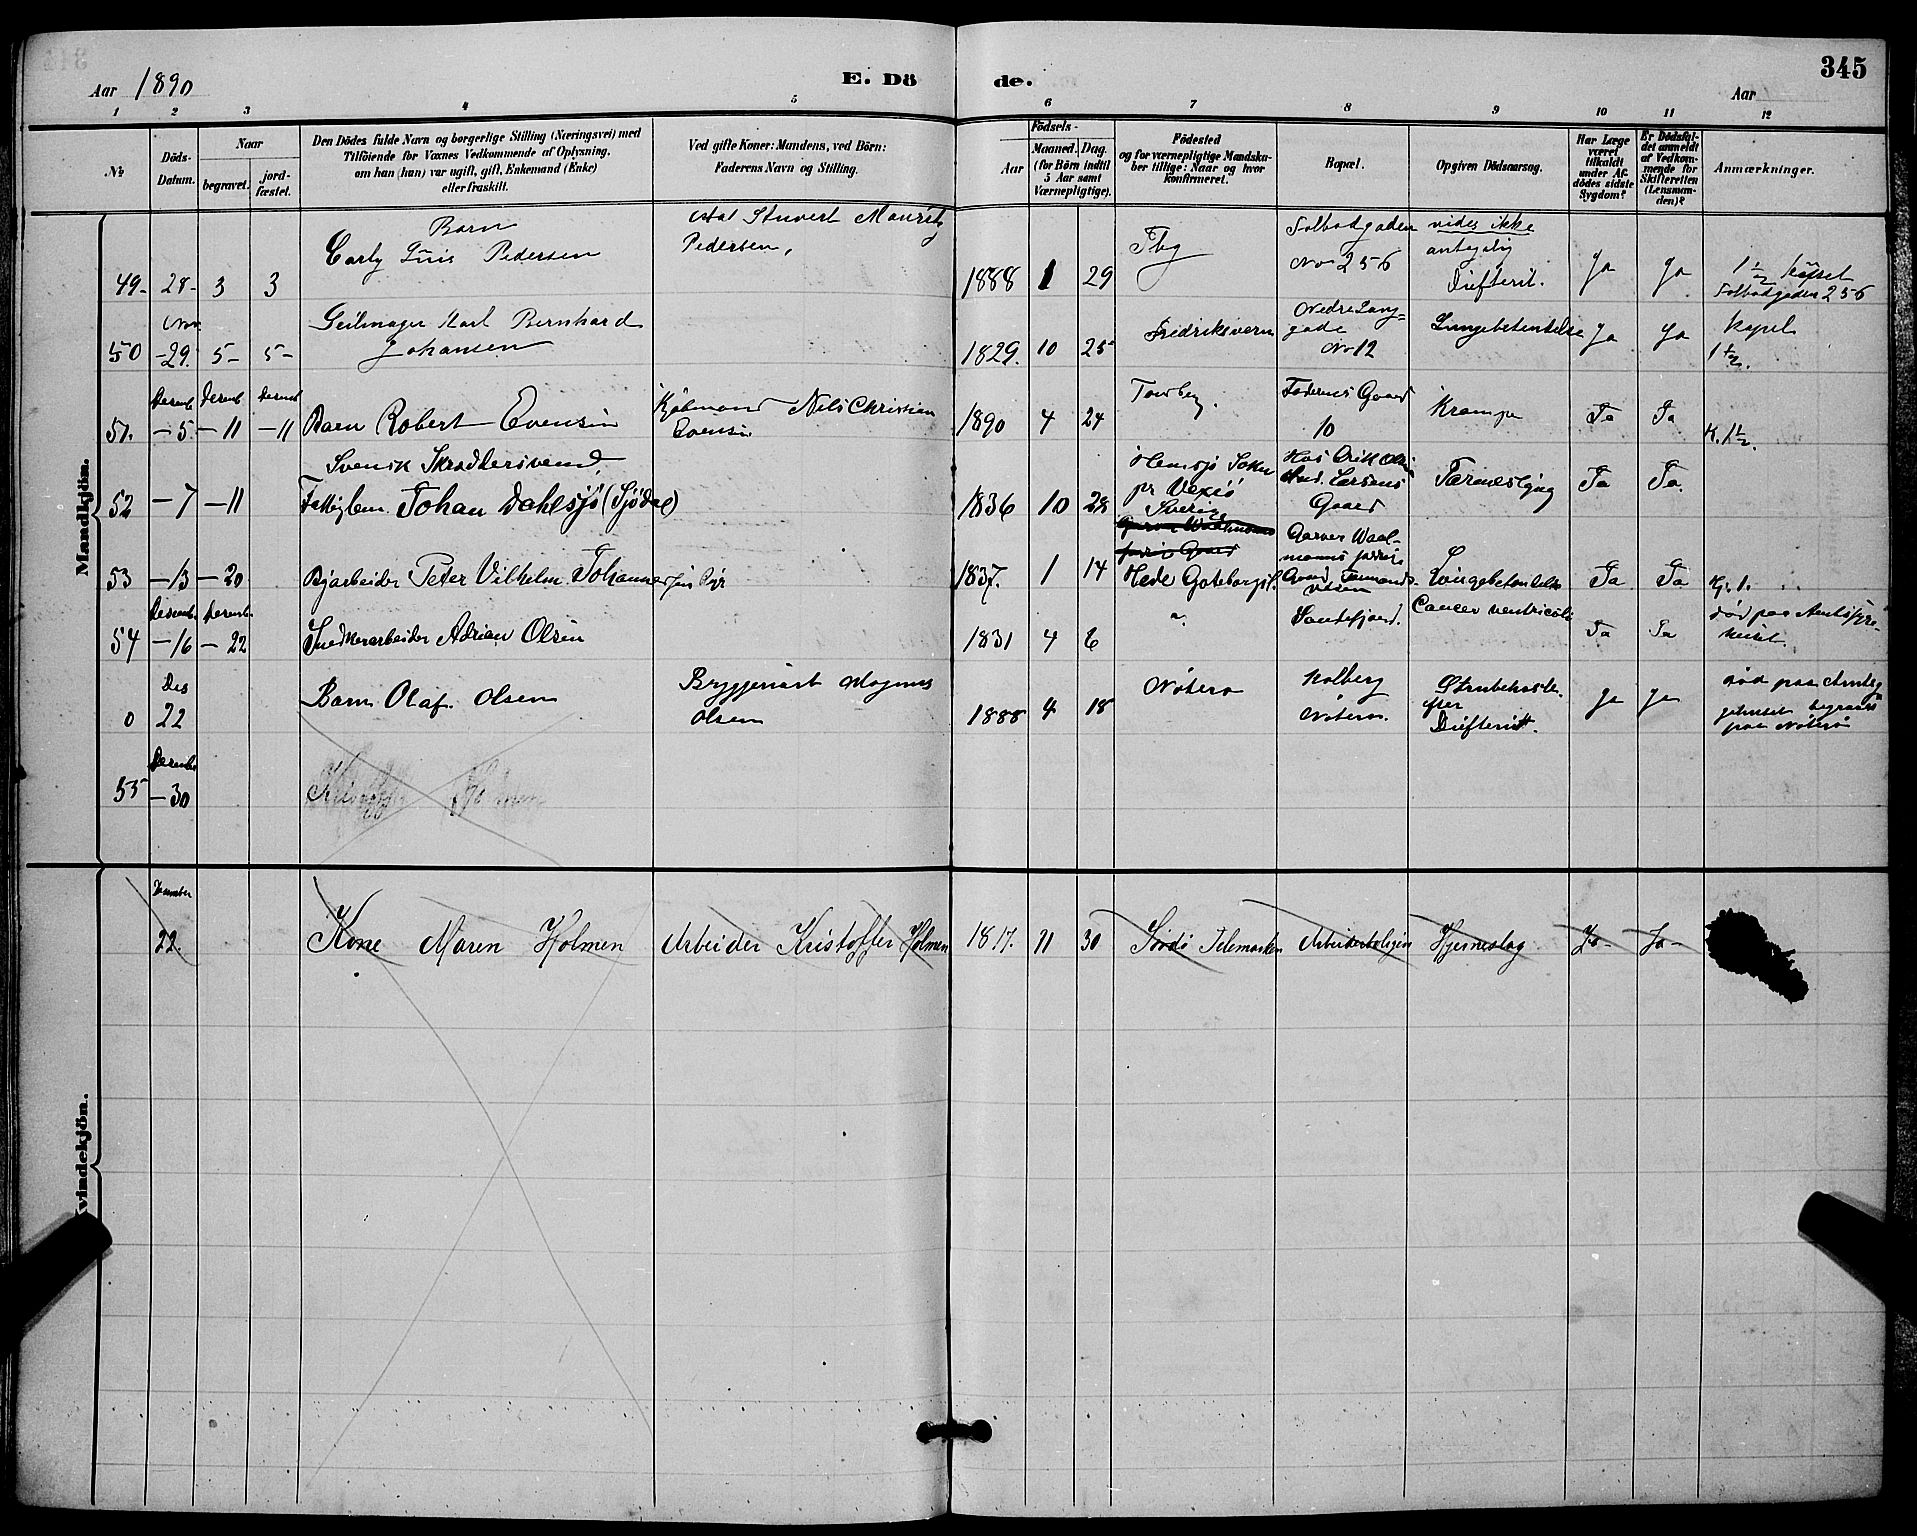 Aar 1890
E. Dö de.
Aar
345
1 2 3 4 5 6 7 8 9 10 11 12
№
Döds-
Datum.
Naar
begravet.
jord-
fæstet.
Den Dödes fulde Navn og borgerlige Stilling (Næringsvei) med
Tilföiende for Voxnes Vedkommende af Oplysning,
om han (hun) var ugift, gift, Enkemand (Enke)
eller fraskilt.
Ved gifte Koner: Mandens, ved Börn:
Faderens Navn og Stilling.
Födsels-
Aar
Maaned. Dag.
(for Börn indtil
5 Aar samt
Værnepligtige).
Födested
og for værnepligtige Mandska-
ber tillige: Naar og hvor
konfirmeret.
Bopæl.
Opgiven Dödsaarsag.
Har Læge
været
tilkaldt
under Af-
dödes sidste
Sygdom?
Er Dödsfal-
det anmeldt
af Vedkom-
mende for
Skifteretten
(Lensman-
den)?
Anmærkninger.
Mandkjön.
49- 28- 3 3
Barn
Carly Pedersen
Mauritz
Pedersen,
1888 1 29
Tbg
No 256
vides ikke
antagelig
Difterit.
Ja Ja
1½
256
Nov.
50 -29. 5- 5-
Seilmager Karl Bernhard
Johansen
1829. 10 25
Fredriksvern
Nedre Lang-
gade
No 12
Lungebetendelse
Ja Ja
Kapel
1½.
Decemb Decemb Decemb
51. -5- -11 -11
Barn Robert Evensen
Kjøbmand Nils Christian
Evensen
1890 4 24
Tønsberg.
Faderens Gaard
10
Krampe
Ja Ja
K. 1½.
52 -7 -11
Svensk Skræddersvend,
Fattiglem Johan Dahlsjö (Sjödal)
1836 10 28
pr Vexiö
Sverige
Larsens
Gaard
Ja Ja.
53 -13 -20
Byarbeider Peter Vilhelm Johannes
1837. 1 14
Hede Goteborgsl.
Garver Waal-
manns forrige
Gaard
Lungebetendelse
Ja Ja
Kj. 1.
Decemb Decemb
54 -16 -22
Snedkerarbeider Adrian Olsen
1831 4 6
Sandefjord.
Cancer ventriculi
Ja Ja
død paa Amtssyge-
huset.
Des
0 22
Barn Olaf Olsen
Magnus
Olsen
1888 4 18
Nøterø
Kolberg
Nøterø.
Strubehoste
efter
Difterit.
Ja Ja
død paa Amtssy
gehuset begravet
paa Nøterø
December
55 -30
Kvindekjön.
December
22.
Kone Maren Holmen
Arbeider Kristoffer Holmen
1817. 11 30
Telemarken
Arbeiderboligen
Hjerneslag
Ja Ja-